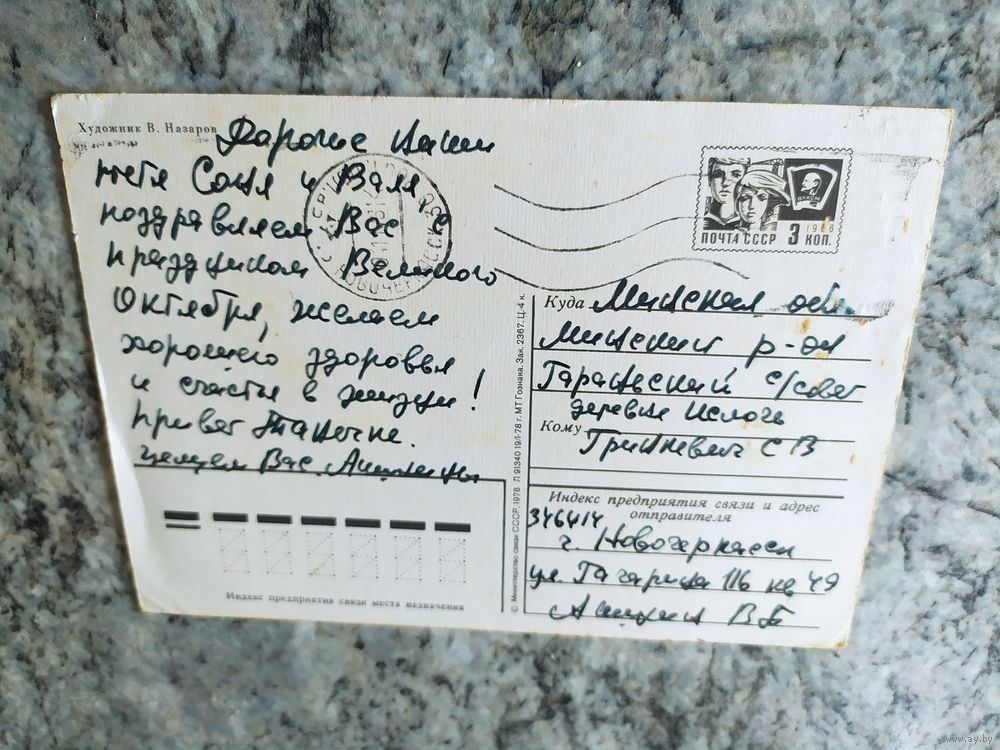 Художник В. Назаров
Дорогие наши
тетя Соня и Валя,
поздравляем Вас с
праздником Великого
Октября, желаем
хорошего здоровья
и счастья в жизни!
Привет Танечке.
целуем Вас
Индекс предприятия связи места назначения
© Министерство связи СССР, 1978 Л 91340 19/I-78 г. МТ Гознака. Зак. 2367. Ц. 4 к.
1966
ПОЧТА СССР 3 КОП.
Куда Минская обл.
Минский р-он
с/совет
деревня
Кому Гришкевич С В
Индекс предприятия связи и адрес
отправителя
346414
г. Новочеркасск
ул. Гагарина 116 кв 49
В Б
www.ay.by